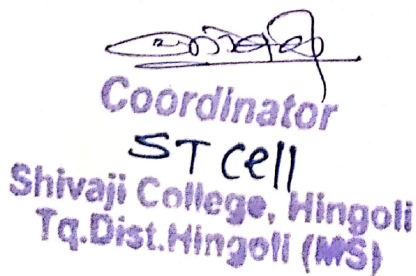 Coordinator
ST Cell
Shivaji College, Hingoli
Tq.Dist.Hingoli (MS)